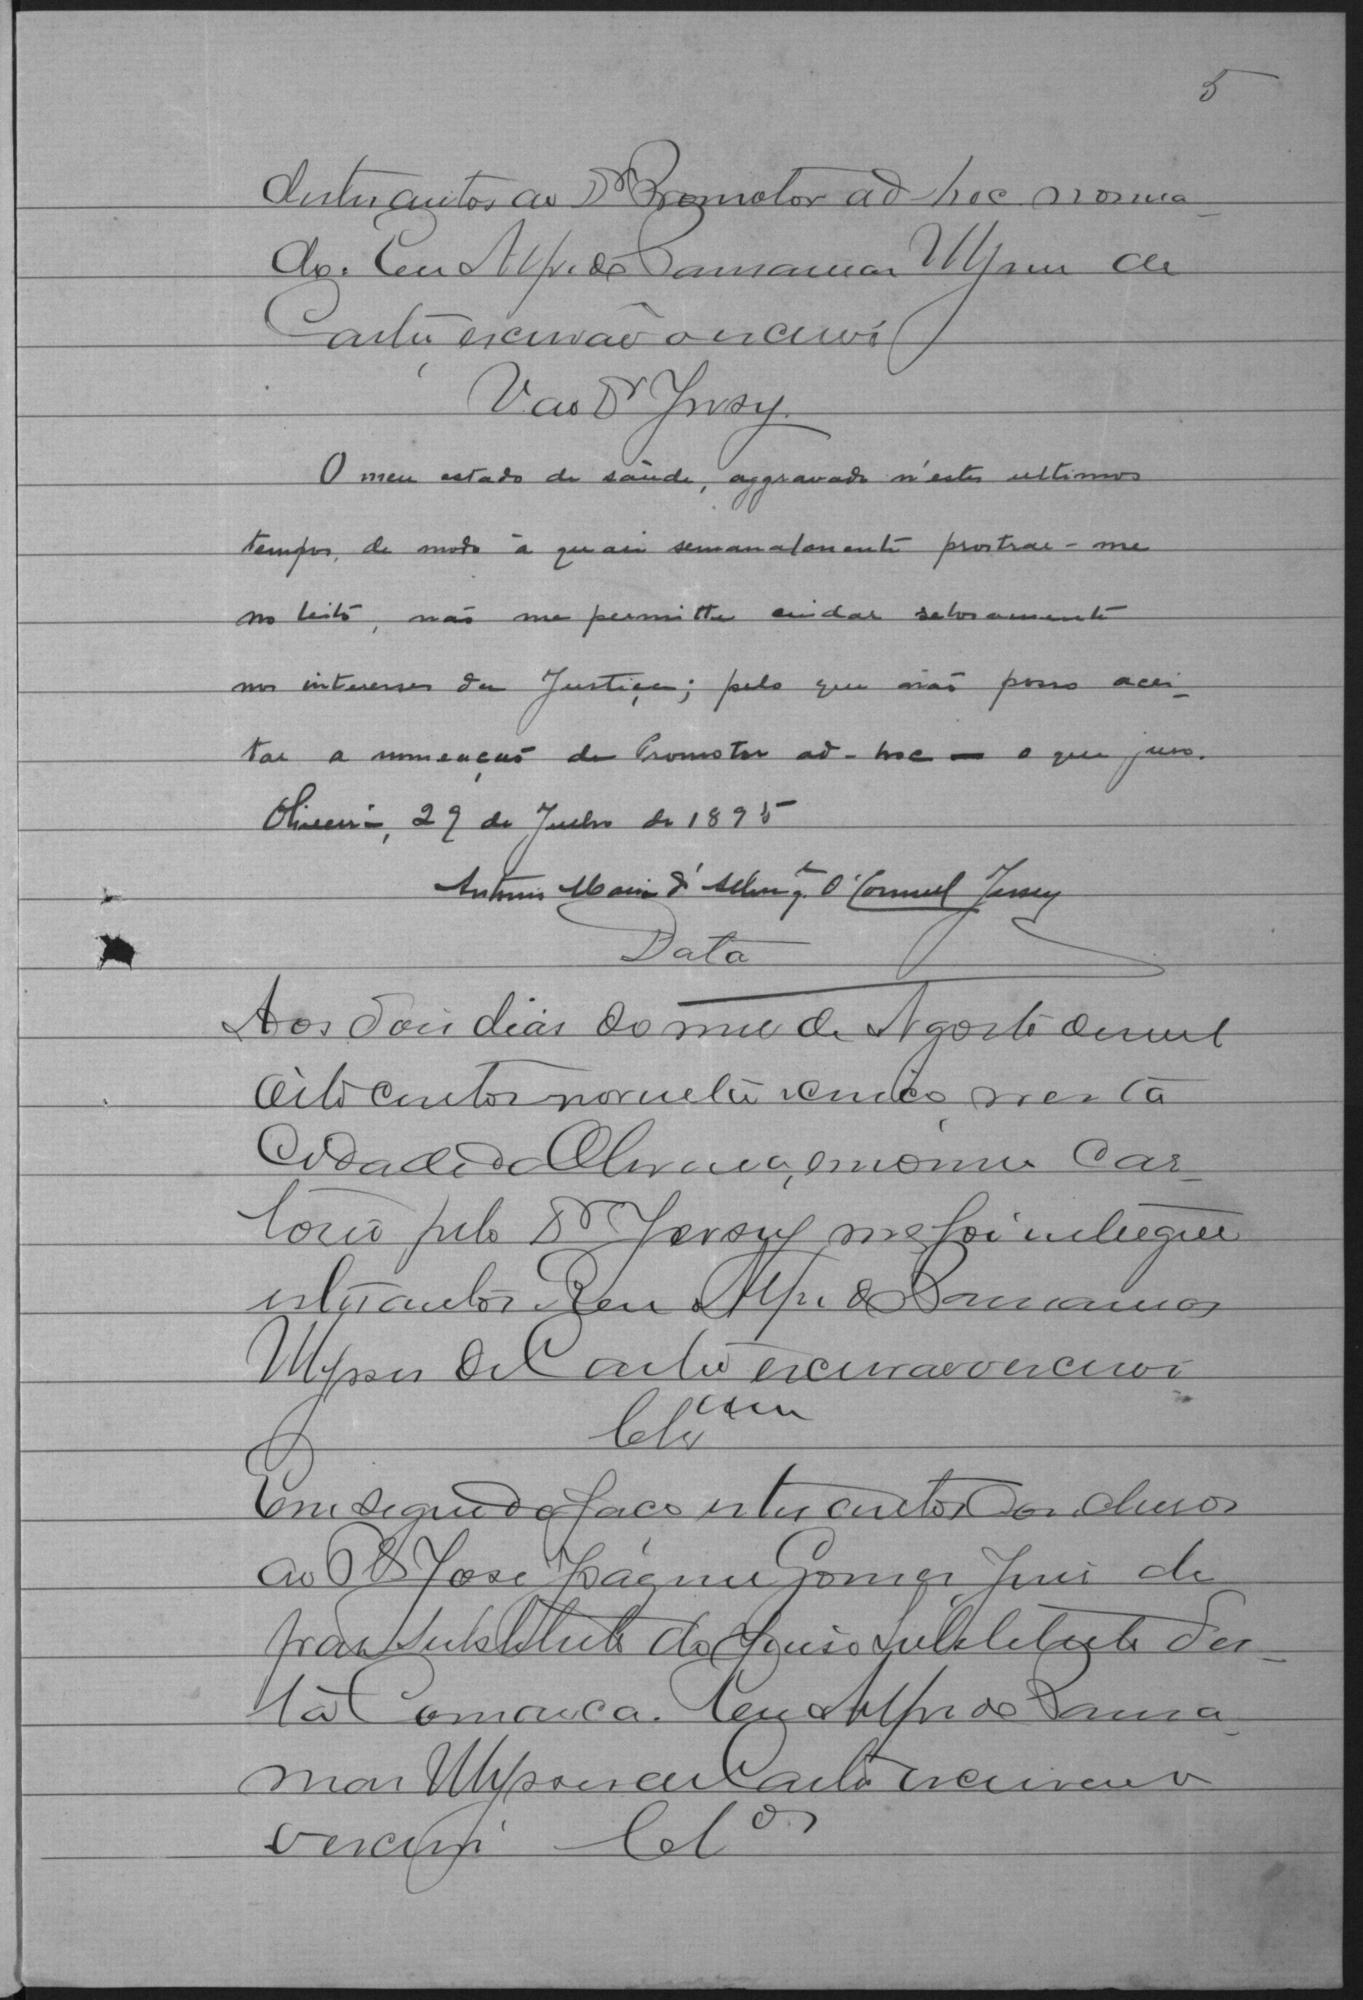 5
destes autos ao Dr Promotor ad-hoc nomea-
do. Eu Alfredo Ulysses de
Castro, escrivão o escrevi
V. ao Dr Jersey.
O meu estado de saúde, aggravado n'estes ultimos
tempos, de modo à quasi semanalmente prostrar-me
no leito, não me permitte cuidar zelosamente
nos interesses da Justiça; pelo que não posso acei-
tar a nomeação de Promotor ad-hoc — o que juro.
Oliveira, 29 de Julho de 1895
Antonio Maria d' O'Connell Jersey
Data
Aos dois dias do mez de Agosto de mil
oito centos noventa e cinco, nesta
Cidade da Oliveira, em o meu Car-
torio pelo Dr Jersey me foi entregue
estes autos Eu Alfredo
Ulysses de Castro escrivão o escrevi
Clsam
Em seguida faço estes autos Conclusos
ao Dr José Gomes, Juiz de
paz substituto do Juiz substituto des-
ta Comarca. Eu Alfredo
Ulysses de Castro escrivão o
escrevi Clos